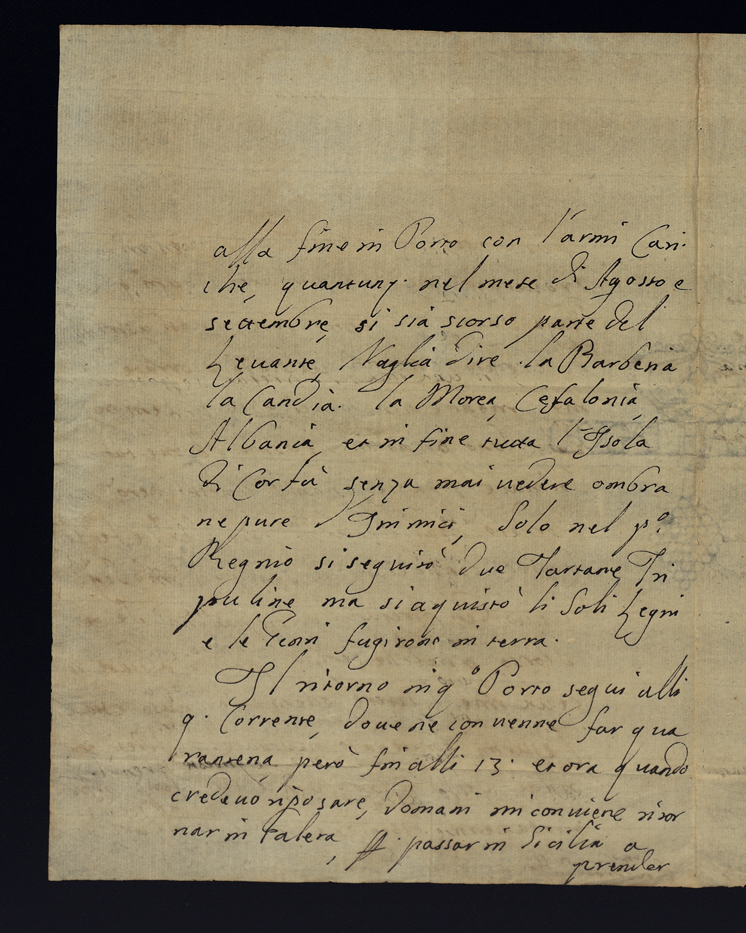 alla fine in Porto con l'armi Cari-
che, quantunq. nel mese di Agosto e
settembre, si sia scorso parte del
Levante, Vaglia dire la Barbería
la Candia. la Morea, Cefalonia,
Albania, et in fine tutta l'Isola
di Corfù senza mai vedere ombra
ne pure d'Inimici, Solo nel pº.
Regnio si seguitò due Tartane Tri
puline ma si aquistò li Soli Legni
e le Genti fugirono in terra.
Il ritorno in qº Porto seguì alli
9. Corrente, dove ne convenne far qua
rantena però fin alli 13. et ora quando
credevo riposare, domani mi conviene ritor
nar in Galera, passar in Sicilia a
prender